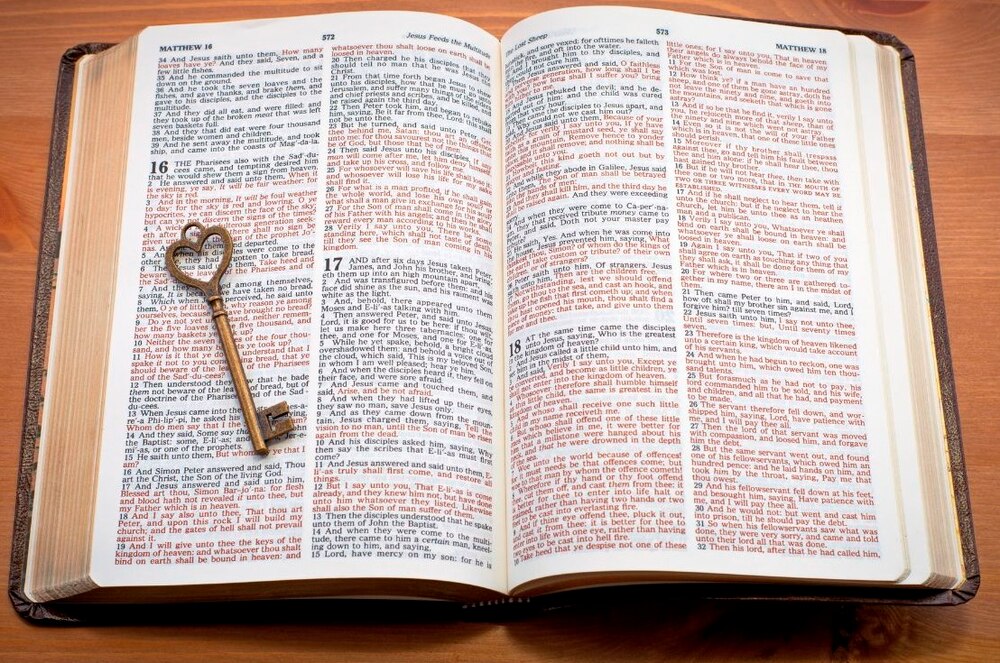 MATTHEW 16
572
Jesus Feeds the Multitude
34 And Jesus saith unto them, How many
loaves have ye? And they said, Seven, and a
few little fishes.
35 And he commanded the multitude to sit
down on the ground.
36 And he took the seven loaves and the
fishes, and gave thanks, and brake them, and
gave to his disciples, and the disciples to the
multitude.
37 And they did all eat, and were filled: and
they took up of the broken meat that was left
seven baskets full.
38 And they that did eat were four thousand
men, beside women and children.
39 And he sent away the multitude, and took
ship, and came into the coasts of Mag'-da-la.
16 THE Pharisees also with the Sad'-du-
cees came, and tempting desired him
that he would shew them a sign from heaven.
2 He answered and said unto them, When it
is evening, ye say, It will be fair weather: for
the sky is red.
3 And in the morning, It will be foul weather
to day: for the sky is red and lowring. O ye
hypocrites, ye can discern the face of the sky;
but can ye not discern the signs of the times?
4 A wicked and adulterous generation seek-
eth after a sign; and there shall no sign be
given unto it, but the sign of the prophet Jo'-
nas. And he left them, and departed.
5 And when his disciples were come to the
other side, they had forgotten to take bread.
6 Then Jesus said unto them, Take heed and
beware of the leaven of the Pharisees and of
the Sad'-du-cees.
7 And they reasoned among themselves,
saying, It is because we have taken no bread.
8 Which when Jesus perceived, he said unto
them, O ye of little faith, why reason ye among
yourselves, because ye have brought no bread?
9 Do ye not yet understand, neither remem-
ber the five loaves of the five thousand, and
how many baskets ye took up?
10 Neither the seven loaves of the four thou-
sand, and how many baskets ye took up?
11 How is it that ye do not understand that I
spake it not to you concerning bread, that ye
should beware of the leaven of the Pharisees
and of the Sad'-du-cees?
12 Then understood they how that he bade
them not beware of the leaven of bread, but of
the doctrine of the Pharisees and of the Sad'-
du-cees.
13 When Jesus came into the coasts of Caes-a-
re'-a Phi-lip'-pi, he asked his disciples, saying,
Whom do men say that I the Son of man am?
14 And they said, Some say that thou art John
the Baptist: some, E-li'-as; and others, Jer-e-
mi'-as, or one of the prophets.
15 He saith unto them, But whom say ye that I
am?
16 And Simon Peter answered and said, Thou
art the Christ, the Son of the living God.
17 And Jesus answered and said unto him,
Blessed art thou, Simon Bar-jo'-na: for flesh
and blood hath not revealed it unto thee, but
my Father which is in heaven.
18 And I say also unto thee, That thou art
Peter, and upon this rock I will build my
church; and the gates of hell shall not prevail
against it.
19 And I will give unto thee the keys of the
kingdom of heaven: and whatsoever thou shalt
bind on earth shall be bound in heaven: and
whatsoever thou shalt loose on earth shall be
loosed in heaven.
20 Then charged he his disciples that they
should tell no man that he was Jesus the
Christ.
21 From that time forth began Jesus to shew
unto his disciples, how that he must go unto
Jerusalem, and suffer many things of the elders
and chief priests and scribes, and be killed, and
be raised again the third day.
22 Then Peter took him, and began to rebuke
him, saying, Be it far from thee, Lord: this shall
not be unto thee.
23 But he turned, and said unto Peter, Get
thee behind me, Satan: thou art an offence
unto me: for thou savourest not the things that
be of God, but those that be of men.
24 Then said Jesus unto his disciples, If any
man will come after me, let him deny himself,
and take up his cross, and follow me.
25 For whosoever will save his life shall lose it:
and whosoever will lose his life for my sake
shall find it.
26 For what is a man profited, if he shall gain
the whole world, and lose his own soul? or
what shall a man give in exchange for his soul?
27 For the Son of man shall come in the glory
of his Father with his angels; and then he shall
reward every man according to his works.
28 Verily I say unto you, There be some
standing here, which shall not taste of death,
till they see the Son of man coming in his
kingdom.
17 AND after six days Jesus taketh Peter,
James, and John his brother, and bringeth
them up into an high mountain apart,
2 And was transfigured before them: and his
face did shine as the sun, and his raiment was
white as the light.
3 And, behold, there appeared unto them
Moses and E-li'-as talking with him.
4 Then answered Peter, and said unto Jesus,
Lord, it is good for us to be here: if thou wilt,
let us make here three tabernacles; one for
thee, and one for Moses, and one for E-li'-as.
5 While he yet spake, behold, a bright cloud
overshadowed them: and behold a voice out of
the cloud, which said, This is my beloved Son,
in whom I am well pleased; hear ye him.
6 And when the disciples heard it, they fell on
their face, and were sore afraid.
7 And Jesus came and touched them, and
said, Arise, and be not afraid.
8 And when they had lifted up their eyes,
they saw no man, save Jesus only.
9 And as they came down from the moun-
tain, Jesus charged them, saying, Tell the
vision to no man, until the Son of man be risen
again from the dead.
10 And his disciples asked him, saying, Why
then say the scribes that E-li'-as must first
come?
11 And Jesus answered and said unto them, E-
li'-as truly shall first come, and restore all
things.
12 But I say unto you, That E-li'-as is come
already, and they knew him not, but have done
unto him whatsoever they listed. Likewise
shall also the Son of man suffer of them.
13 Then the disciples understood that he spake
unto them of John the Baptist.
14 And when they were come to the multi-
tude, there came to him a certain man, kneel-
ing down to him, and saying,
15 Lord, have mercy on my son: for he is
The Lost Sheep
573
MATTHEW 18
lunatick, and sore vexed: for ofttimes he falleth
into the fire, and oft into the water.
And I brought him to thy disciples, and
Then Jesus answered and said, O faithless
generation, how long shall I be
how long shall I suffer you? bring
And Jesus rebuked the devil; and he de-
parted out of him: and the child was cured
Then came the disciples to Jesus apart, and
said, Why could not we cast him out?
And Jesus said unto them, Because of your
unbelief: for verily I say unto you, If ye have
faith as a grain of mustard seed, ye shall say
unto this mountain, Remove hence to yonder
place; and it shall remove; and nothing shall
be impossible unto you.
Howbeit this kind goeth not out but by
And while they abode in Galilee, Jesus said
unto them, The Son of man shall be betrayed
into the hands of men:
And they shall kill him, and the third day he
shall be raised again. And they were exceeding
And when they were come to Ca-per'-na-
um, they that received tribute money came to
Peter, and said, Doth not your master pay
He saith, Yes. And when he was come into
the house, Jesus prevented him, saying, What
thinkest thou, Simon? of whom do the kings of
the earth take custom or tribute? of their own
Peter saith unto him, Of strangers. Jesus
saith unto him, Then are the children free.
Notwithstanding, lest we should offend
them, go thou to the sea, and cast an hook, and
take up the fish that first cometh up; and when
thou hast opened his mouth, thou shalt find a
piece of money: that take, and give unto them
18 AT the same time came the disciples
unto Jesus, saying, Who is the greatest
in the kingdom of heaven?
2 And Jesus called a little child unto him, and
set him in the midst of them,
3 And said, Verily I say unto you, Except ye
be converted, and become as little children, ye
shall not enter into the kingdom of heaven.
4 Whosoever therefore shall humble himself
as this little child, the same is greatest in the
kingdom of heaven.
5 And whoso shall receive one such little
child in my name receiveth me.
6 But whoso shall offend one of these little
ones which believe in me, it were better for
him that a millstone were hanged about his
neck, and that he were drowned in the depth
of the sea.
7 Woe unto the world because of offences!
for it must needs be that offences come; but
woe to that man by whom the offence cometh!
8 Wherefore if thy hand or thy foot offend
thee, cut them off, and cast them from thee: it
is better for thee to enter into life halt or
maimed, rather than having two hands or two
feet to be cast into everlasting fire.
9 And if thine eye offend thee, pluck it out,
and cast it from thee: it is better for thee to
enter into life with one eye, rather than having
two eyes to be cast into hell fire.
10 Take heed that ye despise not one of these
little ones; for I say unto you, That in heaven
their angels do always behold the face of my
Father which is in heaven.
11 For the Son of man is come to save that
which was lost.
12 How think ye? if a man have an hundred
sheep, and one of them be gone astray, doth he
not leave the ninety and nine, and goeth into
the mountains, and seeketh that which is gone
astray?
13 And if so be that he find it, verily I say unto
you, he rejoiceth more of that sheep, than of
the ninety and nine which went not astray.
14 Even so it is not the will of your Father
which is in heaven, that one of these little ones
should perish.
15 Moreover if thy brother shall trespass
against thee, go and tell him his fault between
thee and him alone: if he shall hear thee, thou
hast gained thy brother.
16 But if he will not hear thee, then take with
thee one or two more, that IN THE MOUTH OF
TWO OR THREE WITNESSES EVERY WORD MAY BE
ESTABLISHED.
17 And if he shall neglect to hear them, tell it
unto the church: but if he neglect to hear the
church, let him be unto thee as an heathen
man and a publican.
18 Verily I say unto you, Whatsoever ye shall
bind on earth shall be bound in heaven: and
whatsoever ye shall loose on earth shall be
loosed in heaven.
19 Again I say unto you, That if two of you
shall agree on earth as touching any thing that
they shall ask, it shall be done for them of my
Father which is in heaven.
20 For where two or three are gathered to-
gether in my name, there am I in the midst of
them.
21 Then came Peter to him, and said, Lord,
how oft shall my brother sin against me, and I
forgive him? till seven times?
22 Jesus saith unto him, I say not unto thee,
Until seven times: but, Until seventy times
seven.
23 Therefore is the kingdom of heaven likened
unto a certain king, which would take account
of his servants.
24 And when he had begun to reckon, one was
brought unto him, which owed him ten thou-
sand talents.
25 But forasmuch as he had not to pay, his
lord commanded him to be sold, and his wife,
and children, and all that he had, and payment
to be made.
26 The servant therefore fell down, and wor-
shipped him, saying, Lord, have patience with
me, and I will pay thee all.
27 Then the lord of that servant was moved
with compassion, and loosed him, and forgave
him the debt.
28 But the same servant went out, and found
one of his fellowservants, which owed him an
hundred pence: and he laid hands on him, and
took him by the throat, saying, Pay me that
thou owest.
29 And his fellowservant fell down at his feet,
and besought him, saying, Have patience with
me, and I will pay thee all.
30 And he would not: but went and cast him
into prison, till he should pay the debt.
31 So when his fellowservants saw what was
done, they were very sorry, and came and told
unto their lord all that was done.
32 Then his lord, after that he had called him,